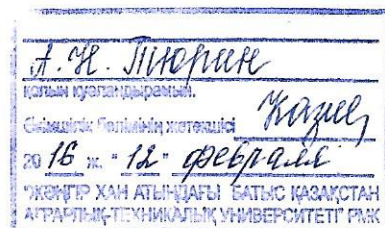 А. Н. Тюрин
қолын куәландырамын.
Әкімшілік бөлімнің жетекшісі
2016 ж. "12" февраля
"ЖӘҢГІР ХАН АТЫНДАҒЫ БАТЫС ҚАЗАҚСТАН
АГРАРЛЫҚ-ТЕХНИКАЛЫҚ УНИВЕРСИТЕТІ" РМК